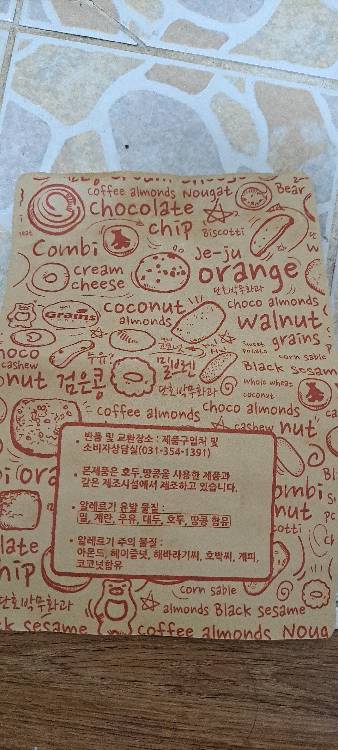 coffee almonds Nougat Bear
chocolate
chip Biscotti
Combi Je-ju
cream orange
cheese 단호박무화과
coconut choco almonds
Grains almonds walnut
grains
sweet potato corn sable
cashew 우유 밀보넨 Black sesam
whole wheat
nut 검은콩 단호박무화과 coconut
coffee almonds choco almonds
cashew nut
• 반품 및 교환장소 : 제품구입처 및
소비자상담실(031-354-1391)
• 본제품은 호두,땅콩을 사용한 제품과
같은 제조시설에서 제조하고 있습니다.
• 알레르기 유발 물질 :
밀, 계란, 우유, 대두, 호두, 땅콩 함유
• 알레르기 주의 물질 :
아몬드, 헤이즐넛, 해바라기씨, 호박씨, 계피,
코코넛함유
corn sable
단호박무화과 almonds Black sesame
k sesame coffee almonds Noug